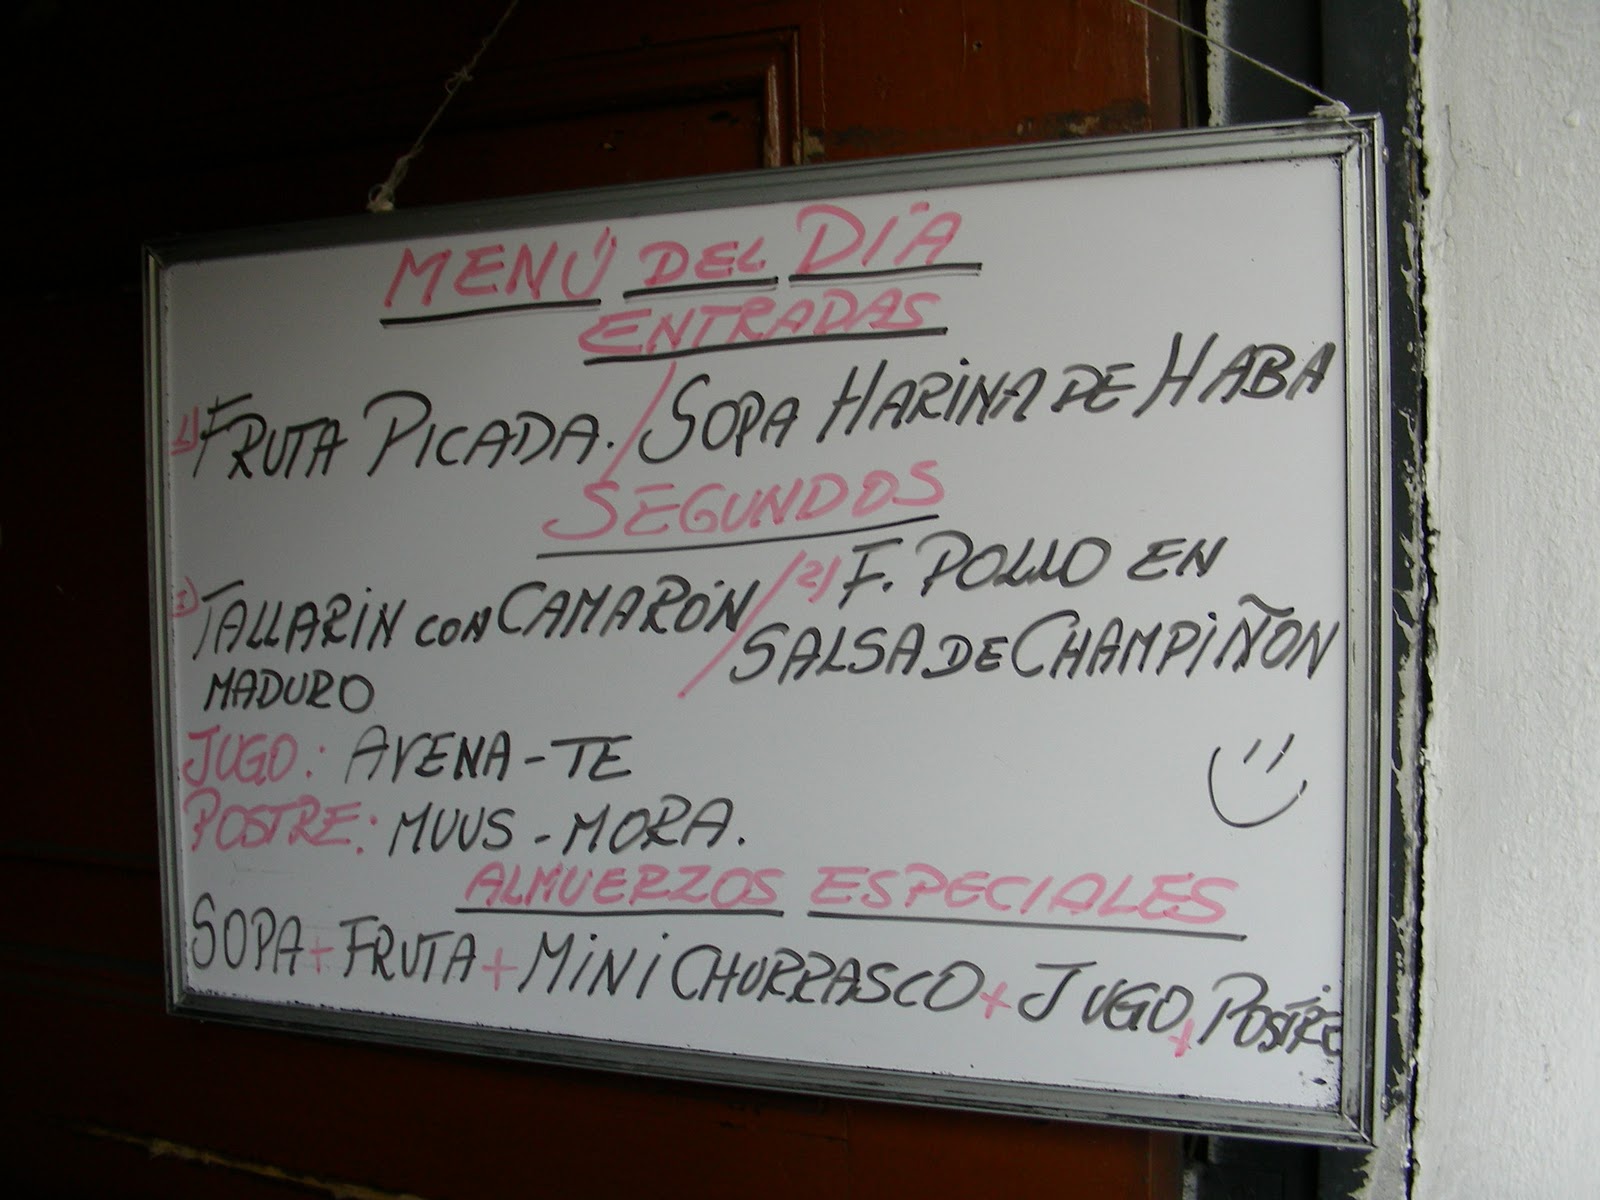 MENÚ DEL DÍA
ENTRADAS
1) FRUTA PICADA. / SOPA HARINA DE HABA
SEGUNDOS
1) TALLARIN CON CAMARÓN MADURO / 2) F. POLLO EN
SALSA DE CHAMPIÑON
JUGO: AVENA - TE
POSTRE: MUUS - MORA.
ALMUERZOS ESPECIALES
SOPA + FRUTA + MINI CHURRASCO + JUGO + POSTRE